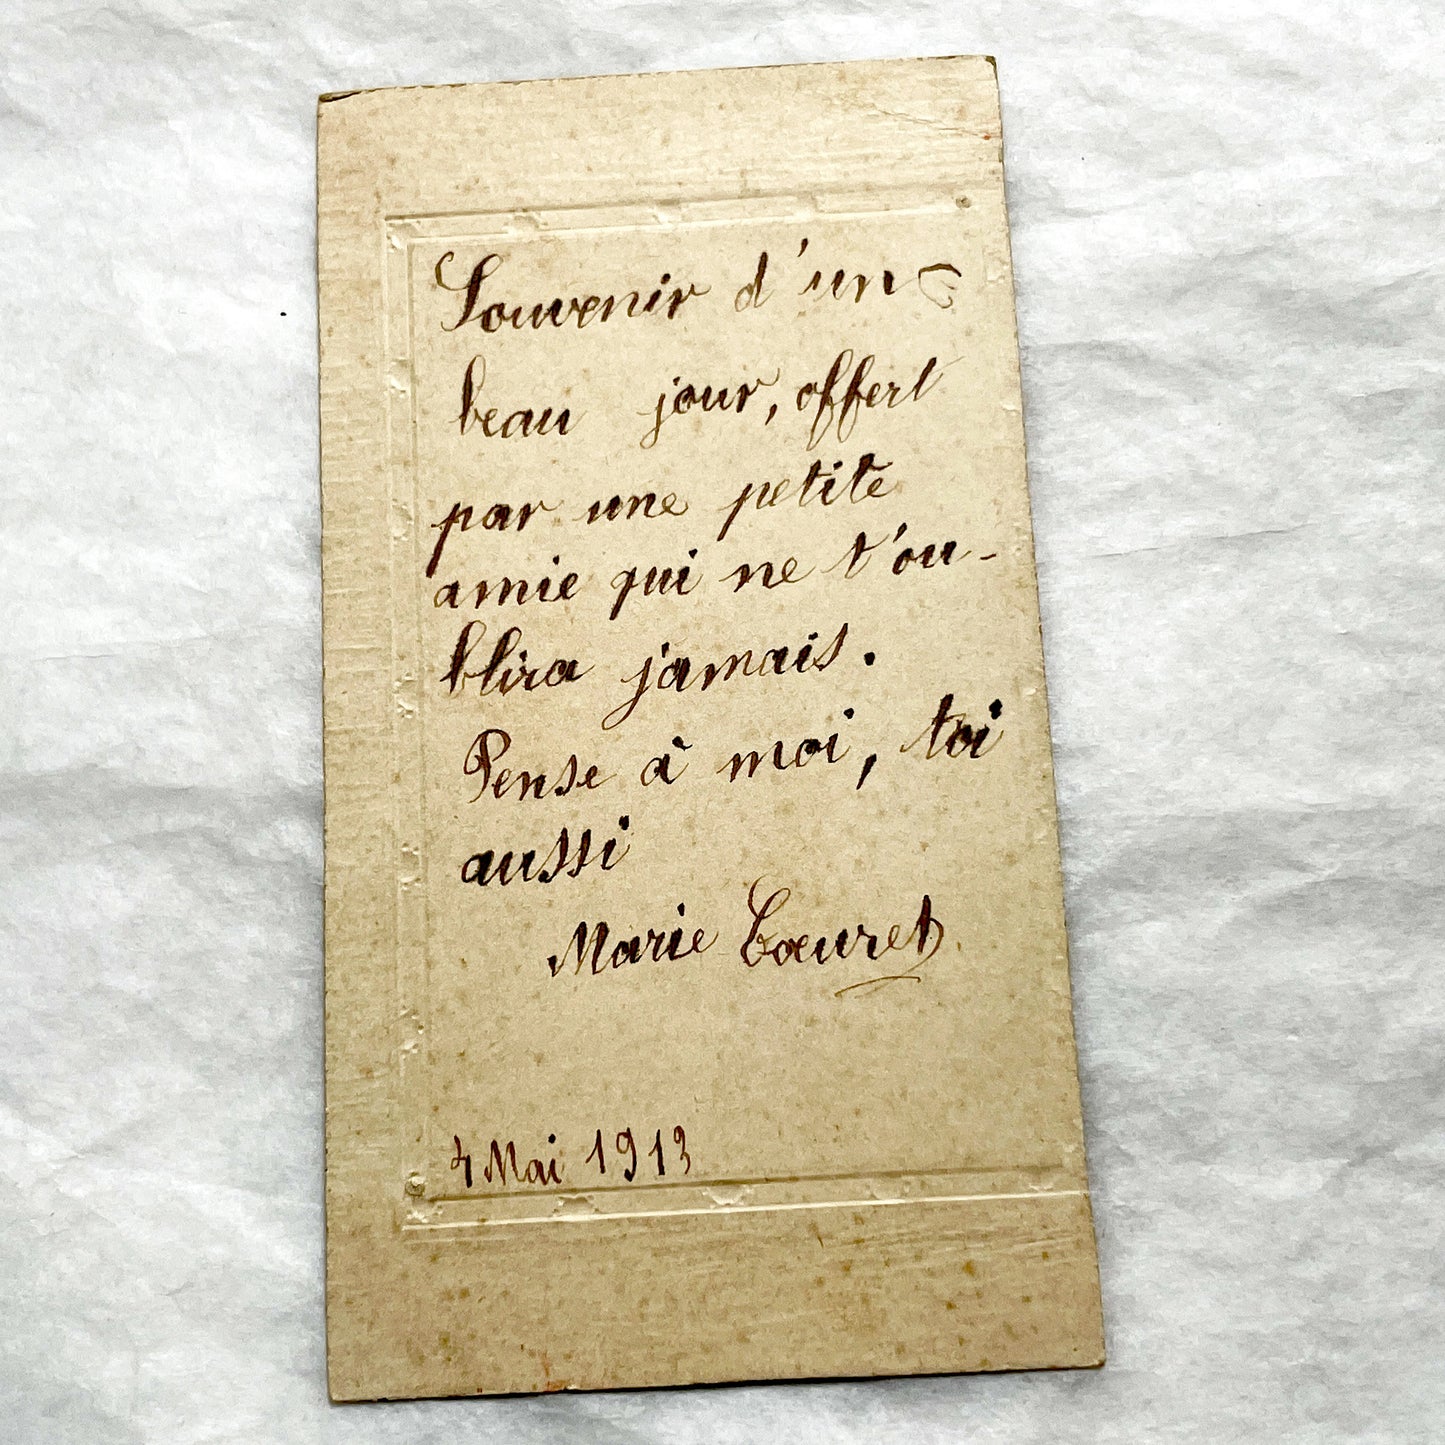 Souvenir d'un
beau jour, offert
par une petite
amie qui ne t'ou-
blira jamais.
Pense à moi, toi
aussi
Marie Cœuret
4 Mai 1913